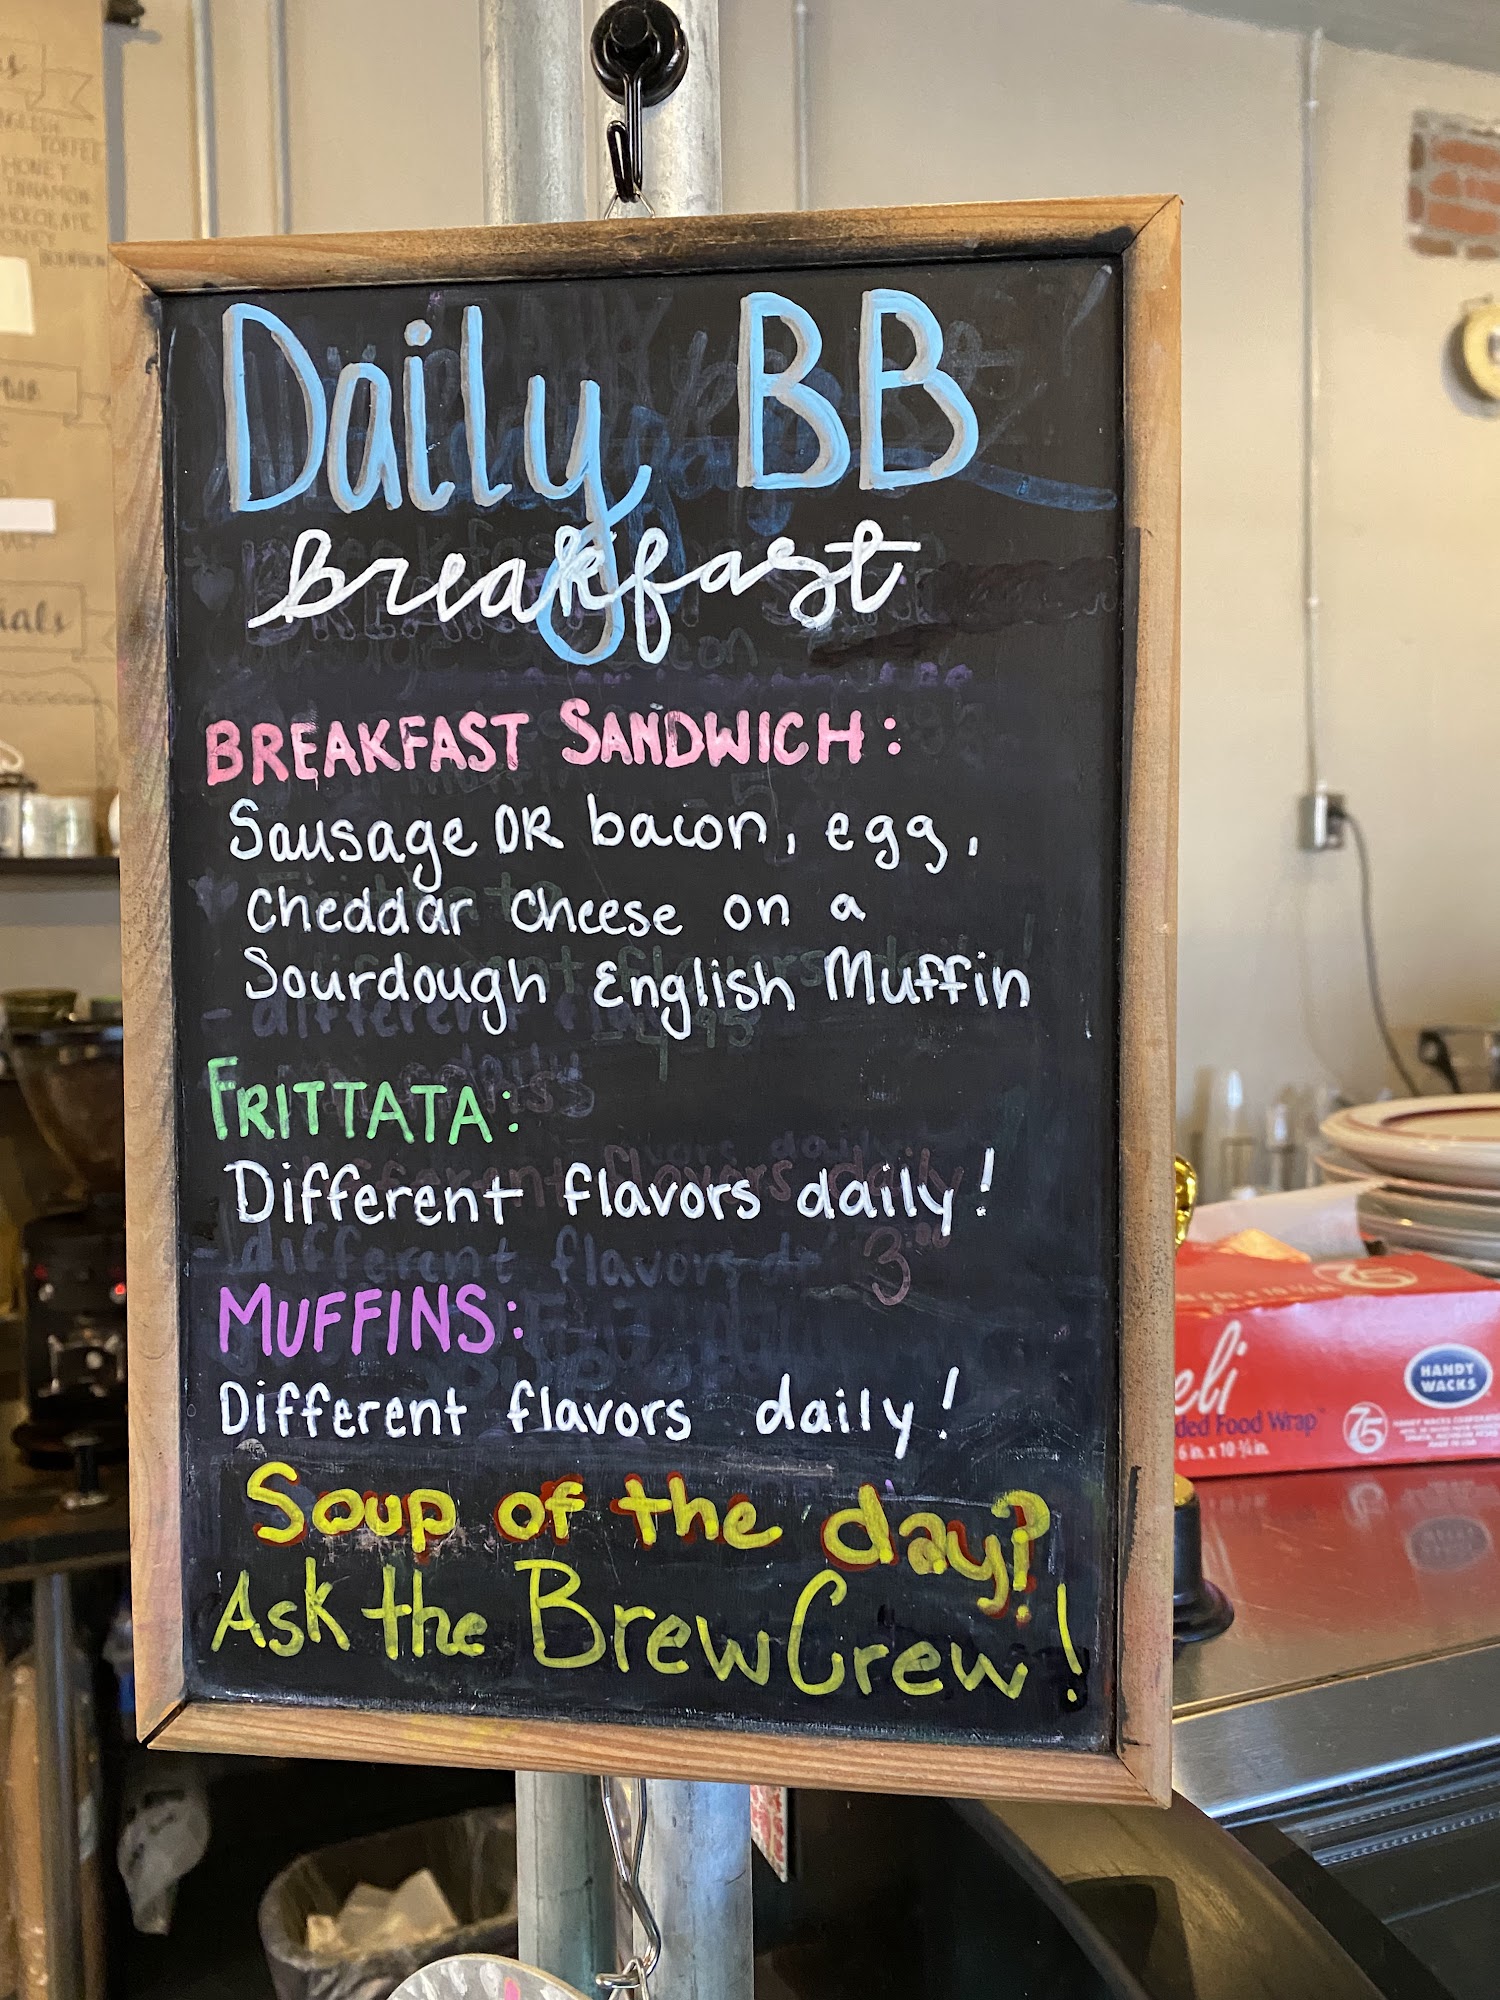 Daily BB
Breakfast
BREAKFAST SANDWICH:
Sausage OR bacon, egg,
Cheddar Cheese on a
Sourdough English Muffin
FRITTATA:
Different flavors daily!
MUFFINS:
Different flavors daily!
Soup of the day?
Ask the Brew Crew!
TOFFEE
HONEY
HONEY
eli
ded Food Wrap
6 in. x 10 3/4 in.
75
HANDY
WACKS